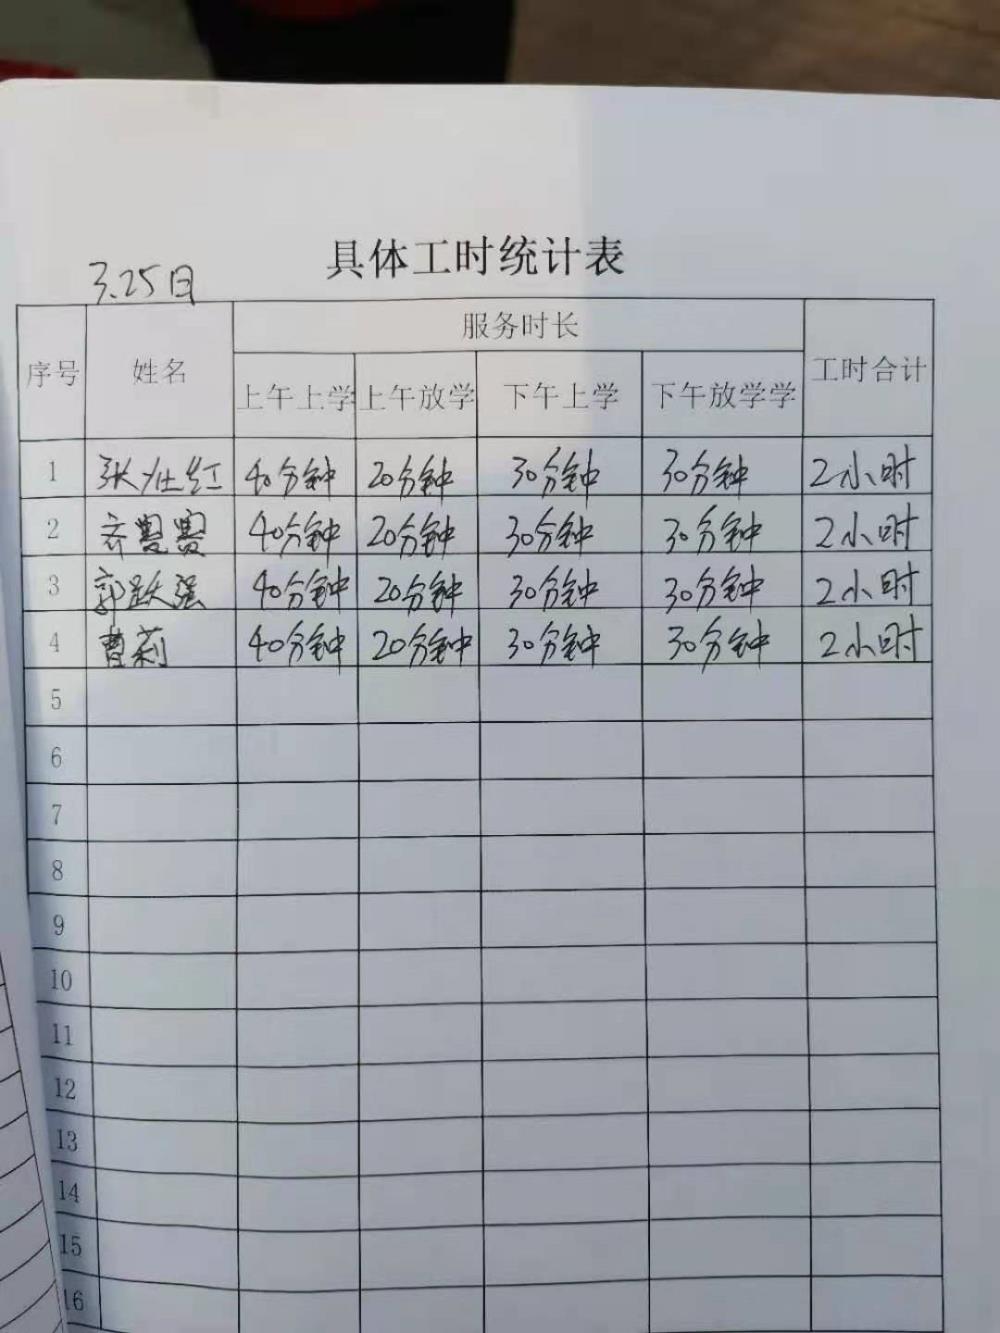 具体工时统计表
3.25日
序号 姓名 服务时长 工时合计
上午上学 上午放学 下午上学 下午放学学
1 张灶红 40分钟 20分钟 30分钟 30分钟 2小时
2 齐 40分钟 20分钟 30分钟 30分钟 2小时
3 郭跃强 40分钟 20分钟 30分钟 30分钟 2小时
4 曹莉 40分钟 20分钟 30分钟 30分钟 2小时
5
6
7
8
9
10
11
12
13
14
15
16